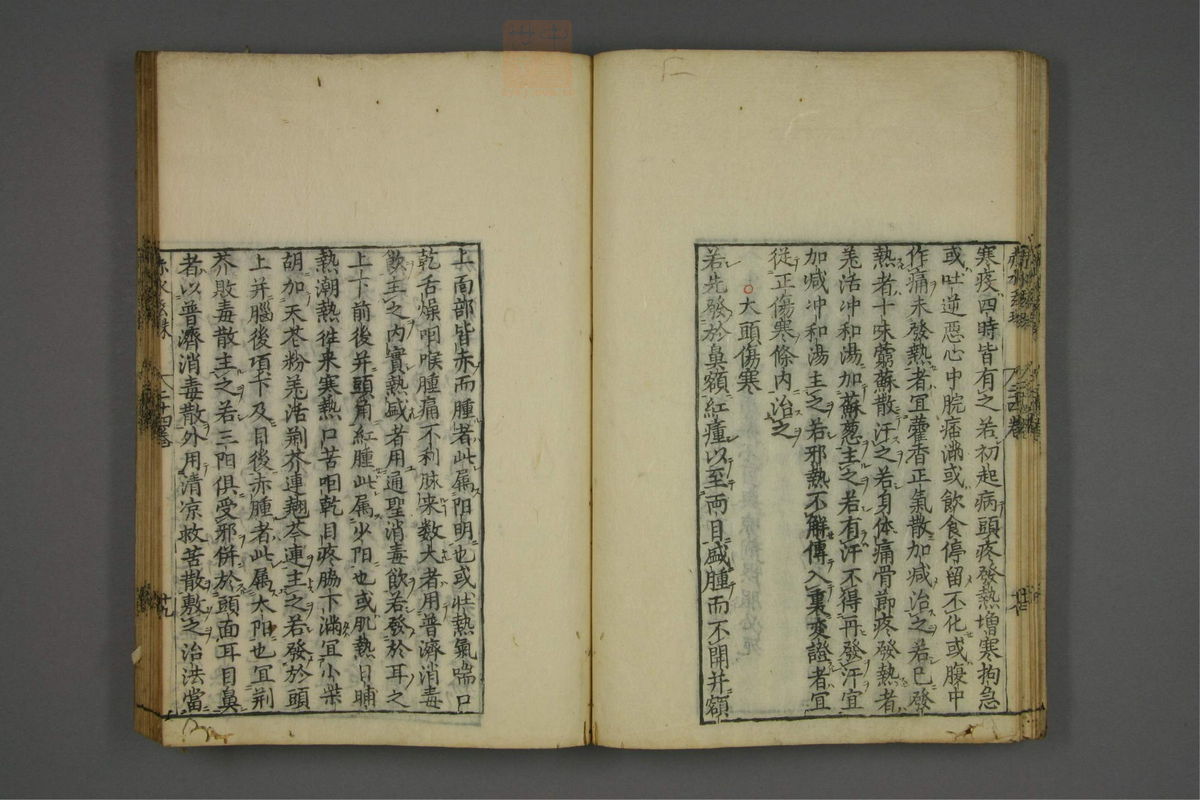 寒疫四時皆有之若初起病頭疼發熱増寒拘急
或吐逆惡心中脘痞滿或飲食停留不化或腹中
作痛未發熱者宜藿香正氣散加减治之若已發
熱者十味蕐蘇散汗之若身体痛骨節疼發熱者
羌活冲和湯加蘇葱主之若有汗不得再發汗宜
加减冲和湯主之若邪熱不解傳入裏变證者宜
従正傷寒條内治之
○大頭傷寒
若先發於鼻額紅瘇以至両目盛腫而不開并額
上面部皆赤而腫者此属阳明也或壮熱氣喘口
乾舌燥咽喉腫痛不利脉来数大者用普濟消毒
飲主之内實熱盛者用通聖消毒飲若發於耳之
上下前後并頭角紅腫此属少阳也或肌熱日晡
熱潮熱徃来寒熱口苦咽乾目疼脇下満宜小柴
胡加天苍粉羌活荆芥連翹芩連主之若發於頭
上并腦後項下及目後赤腫者此属太阳也宜荆
芥敗毒散主之若三阳俱受邪併於頭面耳目鼻
者以普濟消毒散外用清凉救苦散敷之治法當